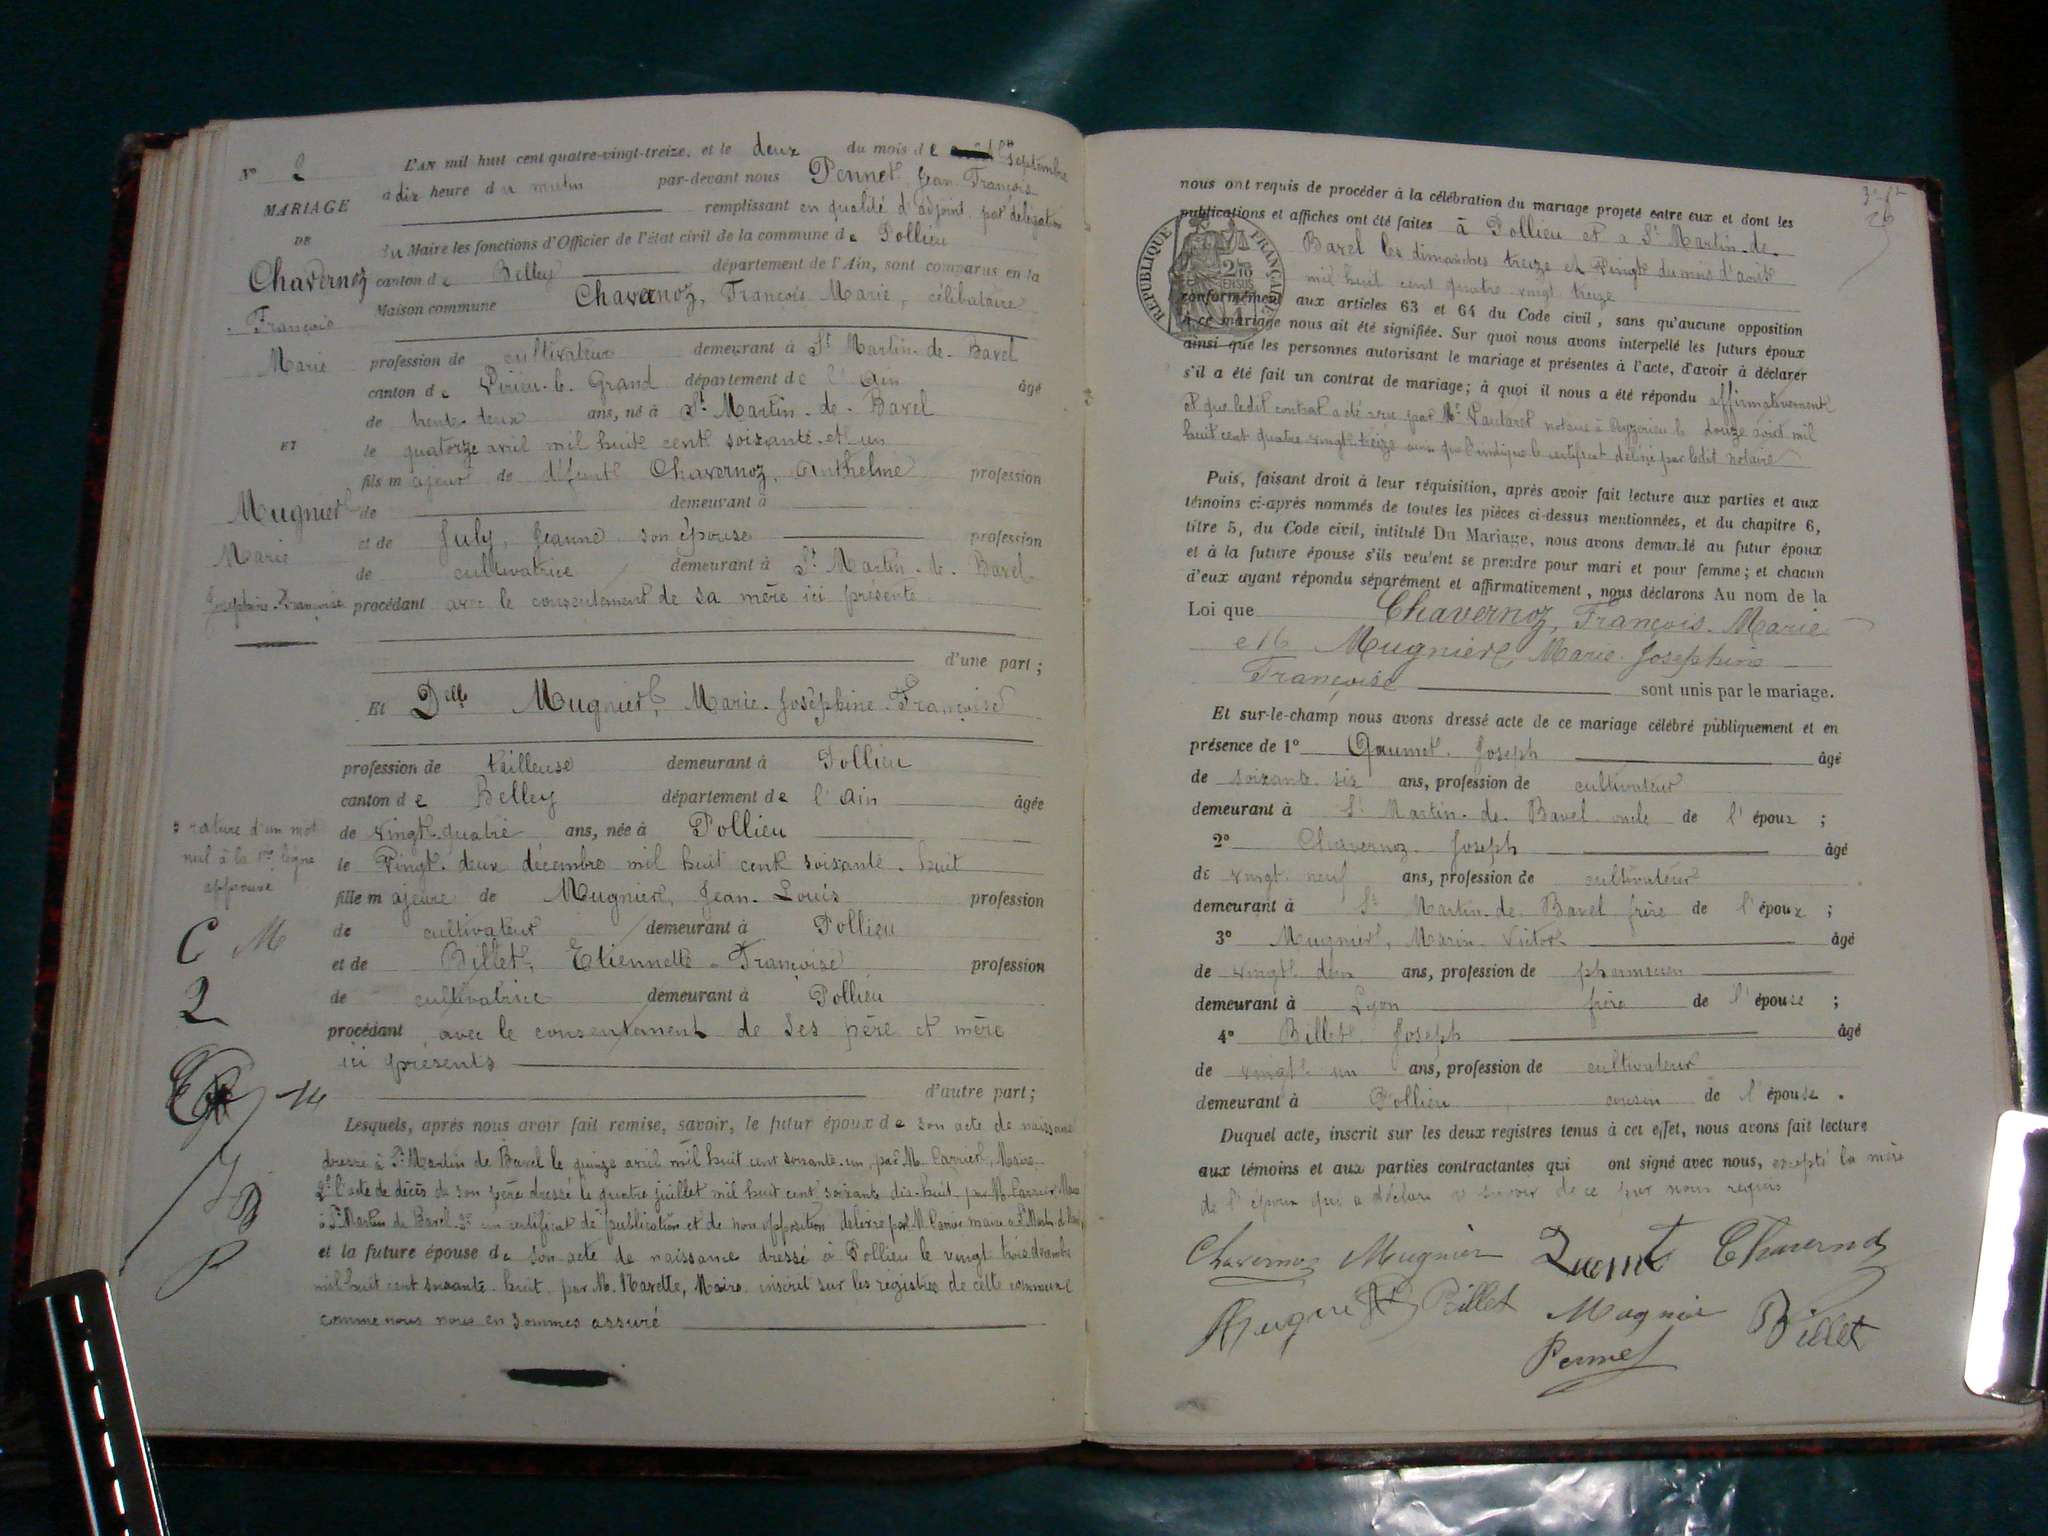 No 2
MARIAGE
DE
Chavernoz
François
Marie
ET
Mugnier
Marie
Josephine Françoise
rature d'un mot
nul à la 1re ligne
approuvé
C M
2
L'AN mil huit cent quatre-vingt-treize, et le deux du mois de septembre
à dix heure du matin par-devant nous Pennet Jean François
remplissant en qualité d'adjoint par délégation
du Maire les fonctions d'Officier de l'état civil de la commune de Pollieu
canton de Belley département de l'Ain, sont comparus en la
Maison commune Chavernoz, François Marie, célibataire
profession de cultivateur demeurant à St Martin-de-Bavel
canton de Virieu-le-Grand département de l'Ain âgé
de trente-deux ans, né à St Martin-de-Bavel
le quatorze avril mil huit cent soixante-et-un
fils majeur de défunt Chavernoz, Anthelme profession
de demeurant à
et de July, Jeanne son épouse profession
de cultivatrice demeurant à St Martin-de-Bavel
procédant avec le consentement de sa mère ici présente
d'une part ;
Et Delle Mugnier, Marie-Joséphine-Françoise
profession de tailleuse demeurant à Pollieu
canton de Belley département de l'Ain âgée
de vingt-quatre ans, née à Pollieu
le Vingt-deux décembre mil huit cent soixante-huit
fille majeure de Mugnier, Jean-Louis profession
de cultivateur demeurant à Pollieu
et de Billet, Etiennette-Françoise profession
de cultivatrice demeurant à Pollieu
procédant avec le consentement de ses père et mère
ici présents
d'autre part ;
Lesquels, après nous avoir fait remise, savoir, le futur époux de son acte de naissance
dressé à St Martin de Bavel le quinze avril mil huit cent soixante-un, par M. Carrier, Maire
2° l'acte de décès de son père dressé le quatre juillet mil huit cent soixante dix-huit par M. Carrier Maire
à St Martin de Bavel 3° un certificat de publication et de non opposition délivré par M. Carrier maire à St Martin de Bavel
et la future épouse de son acte de naissance dressé à Pollieu le vingt trois décembre
mil huit cent soixante-huit, par M. Navette, Maire inscrit sur les registres de cette commune
comme nous nous en sommes assuré
26
nous ont requis de procéder à la célébration du mariage projeté entre eux et dont les
publications et affiches ont été faites à Pollieu et à St Martin-de-
Bavel les dimanches treize et Vingt du mois d'août
mil huit cent quatre-vingt treize
RÉPUBLIQUE FRANÇAISE
conformément aux articles 63 et 64 du Code civil, sans qu'aucune opposition
à ce mariage nous ait été signifiée. Sur quoi nous avons interpellé les futurs époux
ainsi que les personnes autorisant le mariage et présentes à l'acte, d'avoir à déclarer
s'il a été fait un contrat de mariage ; à quoi il nous a été répondu affirmativement
et que ledit contrat a été reçu par Me Pautaret notaire à Ceyzerieu le douze août mil
huit cent quatre-vingt-treize ainsi que l'indique le certificat délivré par ledit notaire
Puis, faisant droit à leur réquisition, après avoir fait lecture aux parties et aux
témoins ci-après nommés de toutes les pièces ci-dessus mentionnées, et du chapitre 6,
titre 5, du Code civil, intitulé Du Mariage, nous avons demandé au futur époux
et à la future épouse s'ils veulent se prendre pour mari et pour femme ; et chacun
d'eux ayant répondu séparément et affirmativement, nous déclarons Au nom de la
Loi que Chavernoz, François-Marie
et Mugnier, Marie-Joséphine
Françoise sont unis par le mariage.
Et sur-le-champ nous avons dressé acte de ce mariage célébré publiquement et en
présence de 1° Joseph âgé
de soixante six ans, profession de cultivateur
demeurant à St Martin-de-Bavel oncle de l'époux ;
2° Chavernoz Joseph âgé
de vingt neuf ans, profession de cultivateur
demeurant à St Martin-de-Bavel frère de l'époux ;
3° Mugnier, Marin Victor âgé
de vingt deux ans, profession de pharmacien
demeurant à Lyon frère de l'épouse ;
4° Billet Joseph âgé
de vingt un ans, profession de cultivateur
demeurant à Pollieu cousin de l'épouse.
Duquel acte, inscrit sur les deux registres tenus à cet effet, nous avons fait lecture
aux témoins et aux parties contractantes qui ont signé avec nous, excepté la mère
de l'époux qui a déclaré ne savoir de ce par nous requis
Chavernoz Mugnier Chavernoz
Mugnier Billet Mugnier Billet
Pennet